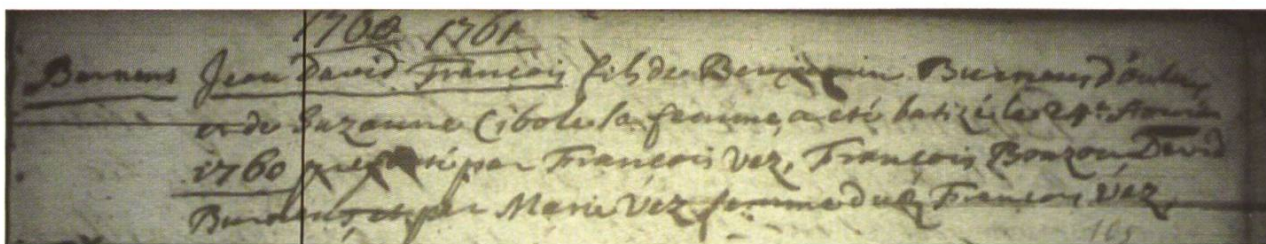 1760 1761
Burnens Jean David François fils de Benjamin Burnens d'Oulens
et de Suzanne Cibole sa femme, a été batizé le 24e
1760 présenté par François Vez, François Bouzon David
Burnens et par Marie Vez femme dud. François Vez,